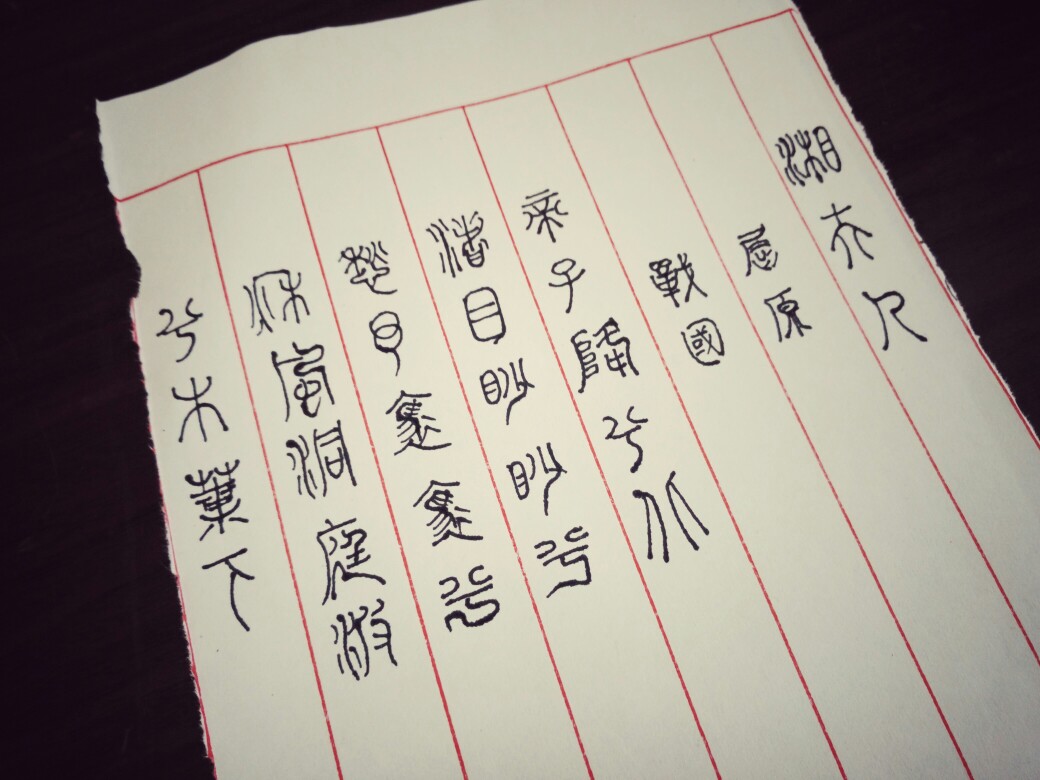 湘夫人
屈原
戰國
帝子歸兮北
渚目眇眇兮
愁予裊裊兮
秋風洞庭波
兮木葉下